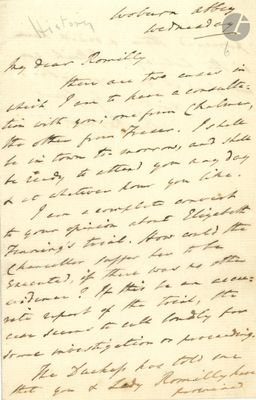 History
Woburn Abbey
Wednesday
6
My dear Romilly
There are two cases in
which I am to have a consulta-
tion with you; one from Chalmer,
the other from Fraser. I shall
be in town to-morrow, and shall
be ready to attend you any day
& at whatever hour you like.
I am a complete convert
to your opinion about Elizabeth
Fenning's trial. How could the
Chancellor suffer her to be
executed, if there was no other
evidence? If this be an accu-
rate report of the trial, the
case seems to call loudly for
some investigation or proceeding.
The Duchess has told me
that you & Lady Romilly have
promised